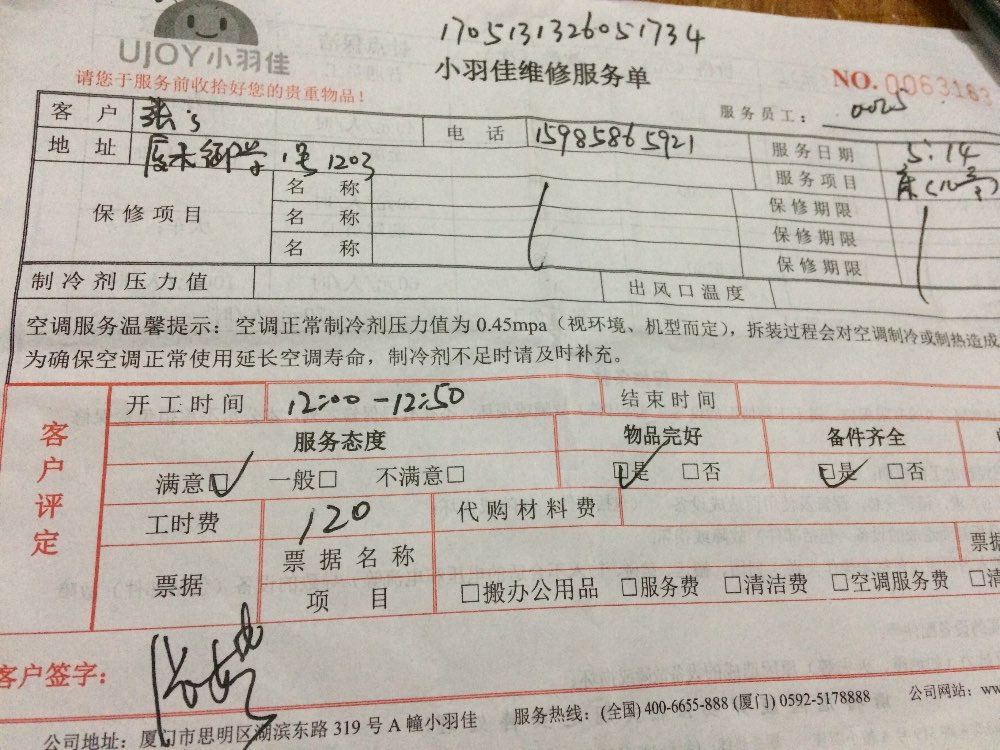 1705131326051734
UJOY小羽佳
小羽佳维修服务单
NO. 0063163
请您于服务前收拾好您的贵重物品！
服务员工： 0025
客 户 张's 电 话 15985865921 服务日期 5.14
地 址 1号1203 服务项目
保修项目 名 称 保修期限
名 称 保修期限
名 称 保修期限
制冷剂压力值 出风口温度
空调服务温馨提示：空调正常制冷剂压力值为 0.45mpa（视环境、机型而定），拆装过程会对空调制冷或制热造成
为确保空调正常使用延长空调寿命，制冷剂不足时请及时补充。
客户评定
开工时间 12:00-12:50 结束时间
服务态度 物品完好 备件齐全
满意☑ 一般□ 不满意□ ☑是 □否 ☑是 □否
工时费 120 代购材料费
票据 票据名称 票据
项 目 □搬办公用品 □服务费 □清洁费 □空调服务费 □清
客户签字：
公司地址：厦门市思明区湖滨东路 319 号 A 幢小羽佳 服务热线：(全国) 400-6655-888 (厦门) 0592-5178888 公司网站：ww